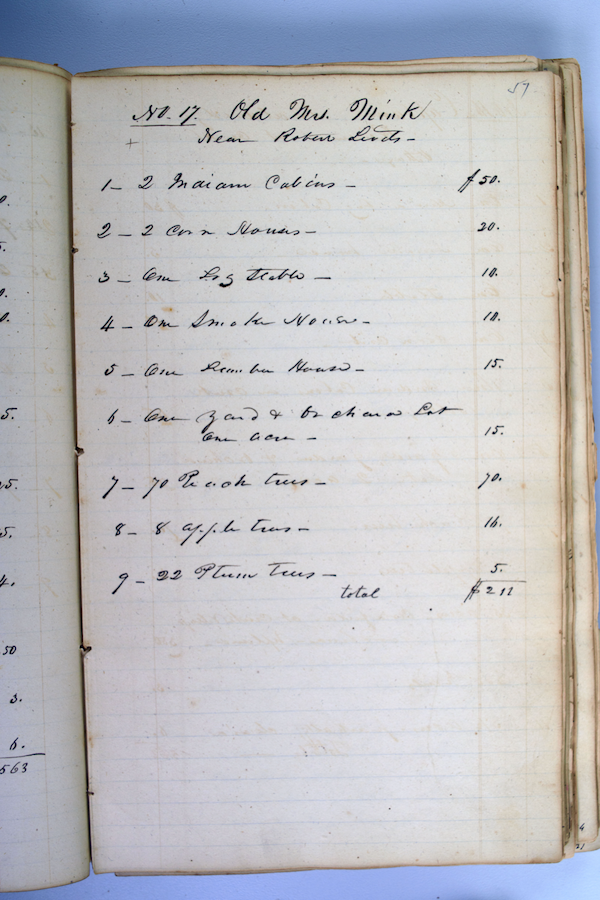 0.
5.
0.
0.
5.
5.
5.
4.
50
3.
6.
563
57
No. 17. Old Mrs. Mink
Near Robert
1 – 2 Indian Cabins – $50.
2 – 2 Corn Houses – 20.
3 – One Log Stable – 10.
4 – One Smoke House – 10.
5 – One Lumber House – 15.
6 – One yard & Orchard Lot
One acre – 15.
7 – 70 Peach trees – 70.
8 – 8 apple trees – 16.
9 – 22 Plum trees – 5.
total $211